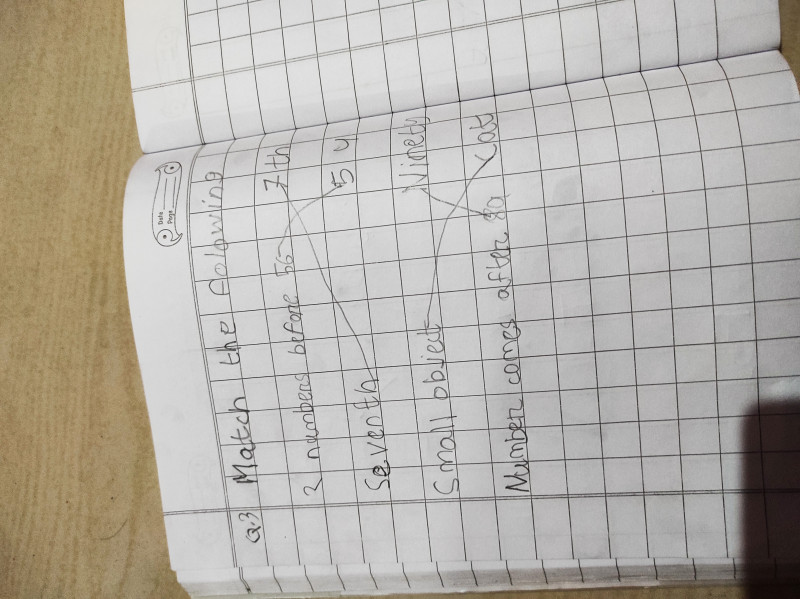 Date
Page
Q.3 Match the folowing
2 numbers before 56 7th
Seventh 54
Small object Ninety
Number comes after 89 Cat